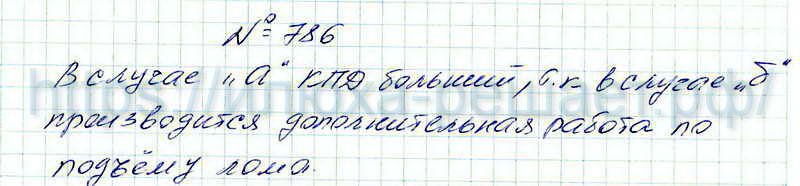 № 786
В случае „а“ КПД больший, т.к в случае „б“
производится дополнительная работа по
подъёму лома.
https://илюха-решает.рф/